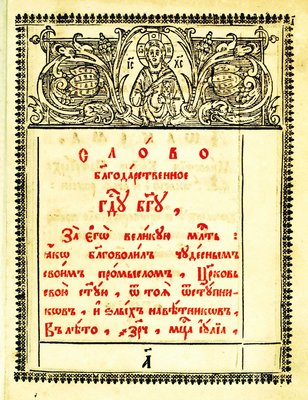 І҃С Х҃С
СЛО́ВО
благода́рственное
гдⷭ҇у бг҃у,
За̀ єгѡ̀ вели́кую млⷭ҇ть :
ꙗ́кѡ благоволи́лъ чꙋде́снымъ
свои́мъ про́мысломъ, Цр҃ковь
свою̀ ст҃ꙋю, ѿ тоѧ̀ ѿстꙋпни-
кѡвъ, и ѕлы́хъ навѣ́тникѡвъ,
Въ лѣ́то, ҂зр҃ч, мцⷭ҇а і҆ꙋ́лїа,
а҃